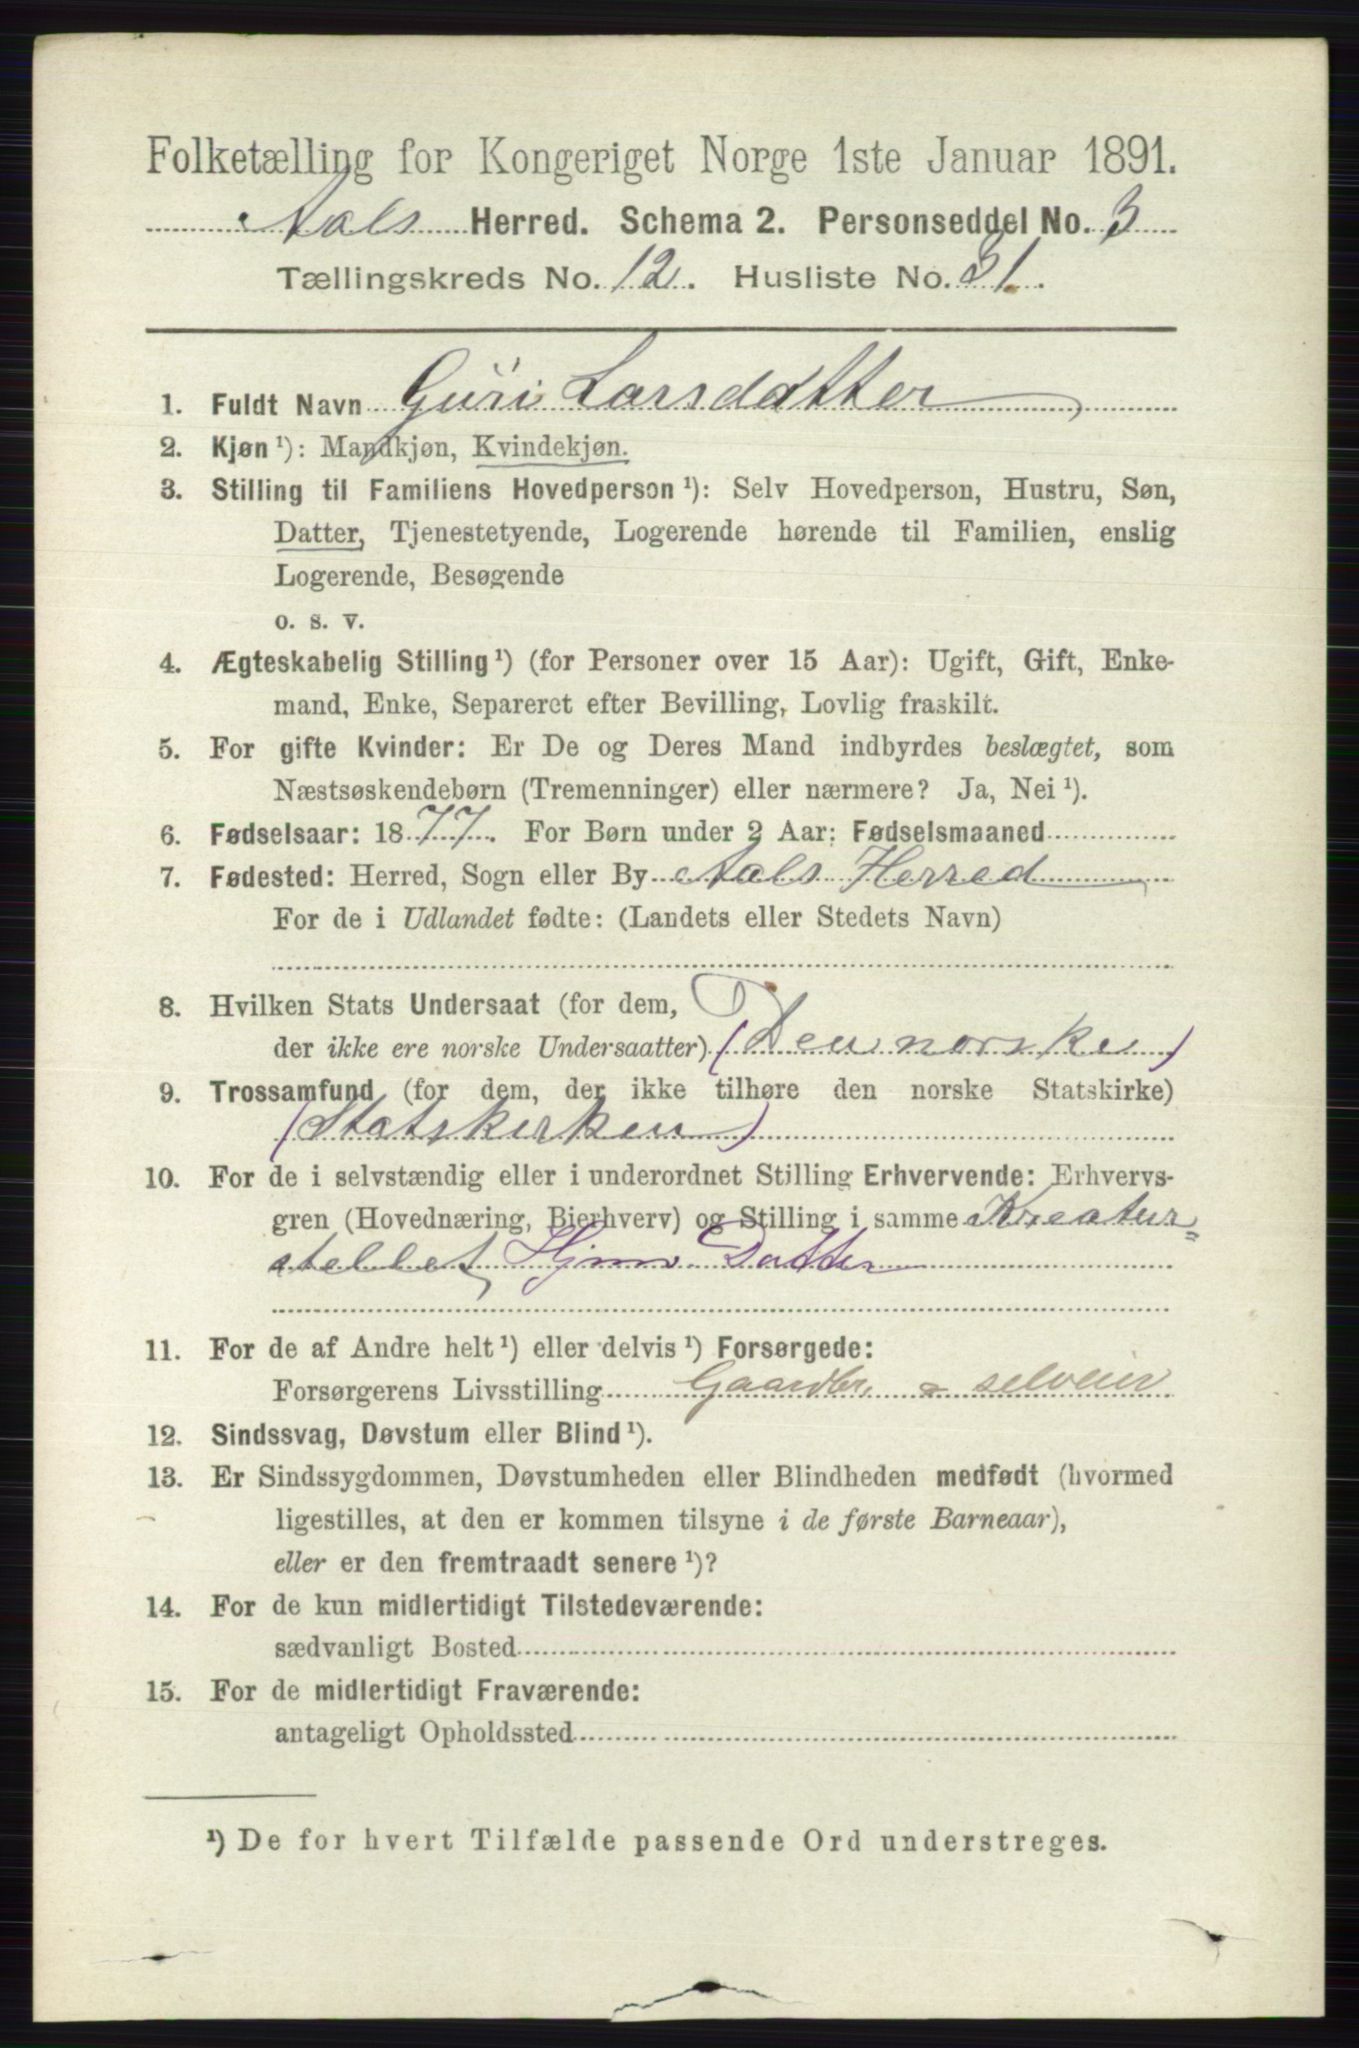 Folketælling for Kongeriget Norge 1ste Januar 1891.
Aals Herred. Schema 2. Personseddel No. 3
Tællingskreds No. 12. Husliste No. 31.
1. Fuldt Navn Guri Larsdatter
2. Kjøn ¹): Mandkjøn, Kvindekjøn.
3. Stilling til Familiens Hovedperson ¹): Selv Hovedperson, Hustru, Søn,
Datter, Tjenestetyende, Logerende hørende til Familien, enslig
Logerende, Besøgende
o. s. v.
4. Ægteskabelig Stilling ¹) (for Personer over 15 Aar): Ugift, Gift, Enke-
mand, Enke, Separeret efter Bevilling, Lovlig fraskilt.
5. For gifte Kvinder: Er De og Deres Mand indbyrdes beslægtet, som
Næstsøskendebørn (Tremenninger) eller nærmere? Ja, Nei ¹).
6. Fødselsaar: 1877. For Børn under 2 Aar: Fødselsmaaned
7. Fødested: Herred, Sogn eller By Aals Herred
For de i Udlandet fødte: (Landets eller Stedets Navn)
8. Hvilken Stats Undersaat (for dem,
der ikke ere norske Undersaatter) (Den norske)
9. Trossamfund (for dem, der ikke tilhøre den norske Statskirke)
(Statskirken)
10. For de i selvstændig eller i underordnet Stilling Erhvervende: Erhvervs-
gren (Hovednæring, Bierhverv) og Stilling i samme Kreatur=
stellet, Hjmv. Datter
11. For de af Andre helt ¹) eller delvis ¹) Forsørgede:
Forsørgerens Livsstilling Gaardbr. & selveier
12. Sindssvag, Døvstum eller Blind ¹).
13. Er Sindssygdommen, Døvstumheden eller Blindheden medfødt (hvormed
ligestilles, at den er kommen tilsyne i de første Barneaar),
eller er den fremtraadt senere ¹)?
14. For de kun midlertidigt Tilstedeværende:
sædvanligt Bosted
15. For de midlertidigt Fraværende:
antageligt Opholdssted
¹) De for hvert Tilfælde passende Ord understreges.